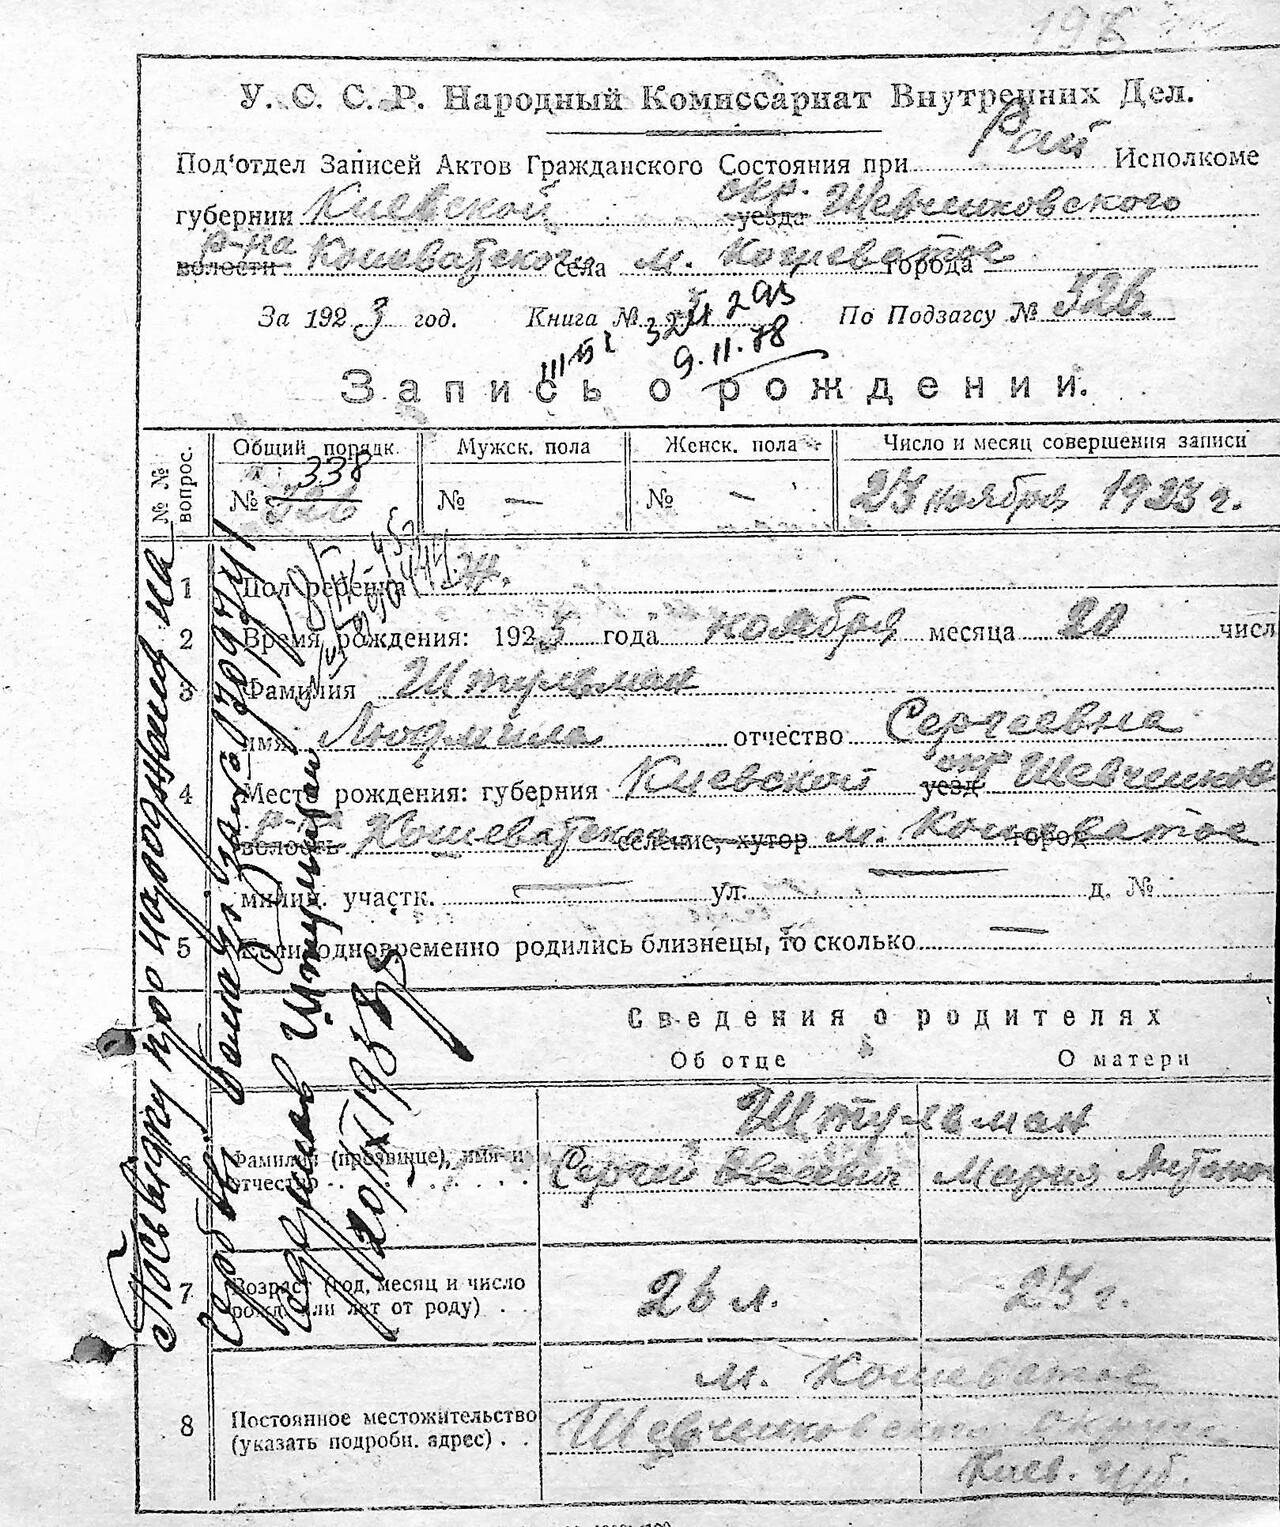 У. С. С. Р. Народный Комиссариат Внутренних Дел.
Под'отдел Записей Актов Гражданского Состояния при Рай Исполкоме
губернии Киевской уезда окр. Шевченковского
волости р-на Кошеватского села м. Кошеватое города
За 1923 год. Книга № По Подзагсу № 526.
9.11.78
Запись о рождении.
№ № вопрос. Общий порядк. Мужск. пола Женск. пола Число и месяц совершения записи
№ 338 № — № — 23 ноября 1923 г.
1 Пол ребенка Ж.
2 Время рождения: 1923 года ноября месяца 20 числ
3 Фамилия Штульман
имя Людмила отчество Сергеевна
4 Место рождения: губерния Киевской уезд окр Шевченков
волость р-на Кошеватского селение, хутор м. Кошеватое город
милиц. участк. — ул. — д. №
5 Если одновременно родились близнецы, то сколько —
Сведения о родителях
Об отце О матери
Штульман
6 Фамилия (прозвище), имя и отчество . . Сергей Евсеевич Мария
7 Возраст (год, месяц и число рожд. или лет от роду) . . 26 л. 23 г.
м. Кошеватое
8 Постоянное местожительство (указать подробн. адрес) . . Шевченковского округа
Киев. губ.